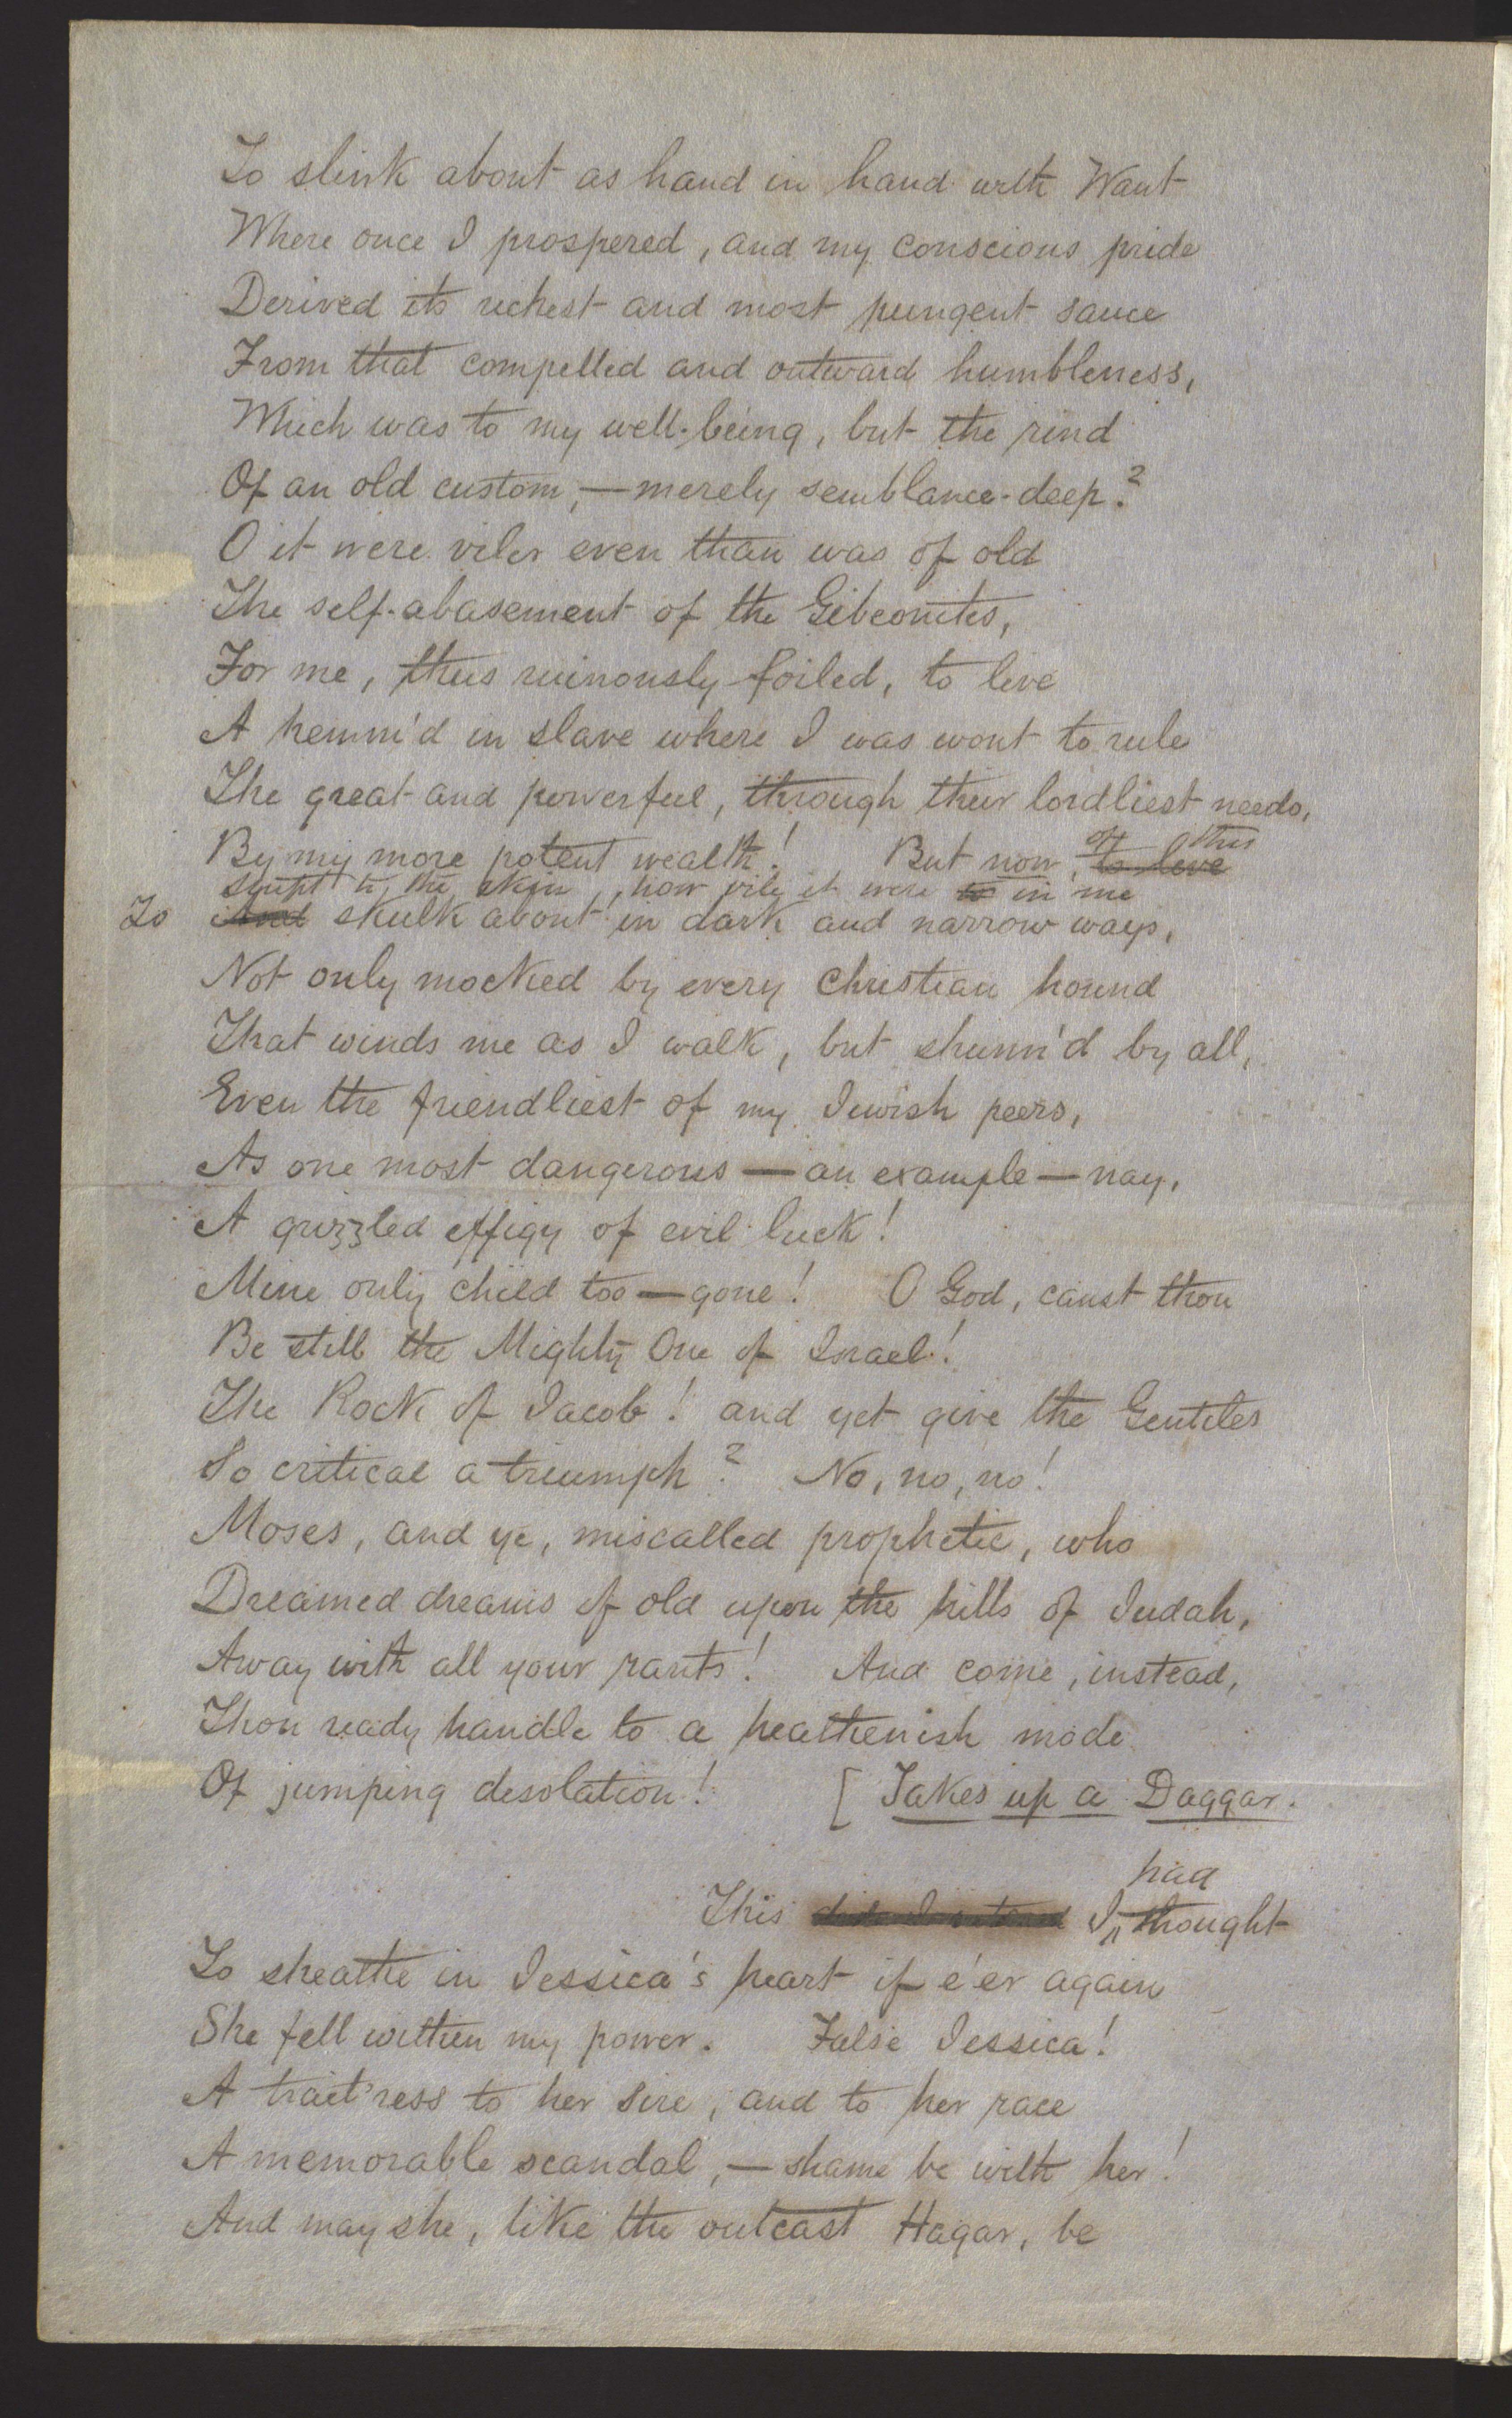 To slink about as hand in hand with Want
Where once I prospered, and my conscious pride
Derived its richest and most pungent sauce
From that compelled and outward humbleness,
Which was to my well-being, but the rind
Of an old custom,—merely semblance-deep?
O it were viler even than was of old
The self-abasement of the Gibeonites,
For me, thus ruinously foiled, to live
A hemm'd in slave where I was wont to rule
The great and powerful, through their lordliest needs,
By my more potent wealth! But now, to live
of this
stript to the skin, how vile it were to in me
To And skulk about in dark and narrow ways,
Not only mocked by every Christian hound
That winds me as I walk, but shunn'd by all,
Even the friendliest of my Jewish peers,
As one most dangerous—an example—nay,
A grizzled effigy of evil luck!
Mine only child too—gone! O God, canst thou
Be still the Mighty One of Israel!
The Rock of Jacob! and yet give the Gentiles
So critical a triumph? No, no, no!
Moses, and ye, miscalled prophetic, who
Dreamed dreams of old upon the hills of Judah,
Away with all your rants! And come, instead,
Thou ready handle to a heathenish mode
Of jumping desolation! [Takes up a Daggar.
had
This I thought
To sheathe in Jessica's heart if e'er again
She fell within my power. False Jessica!
A trait'ress to her sire, and to her race
A memorable scandal,—shame be with her!
And may she, like the outcast Hagar, be